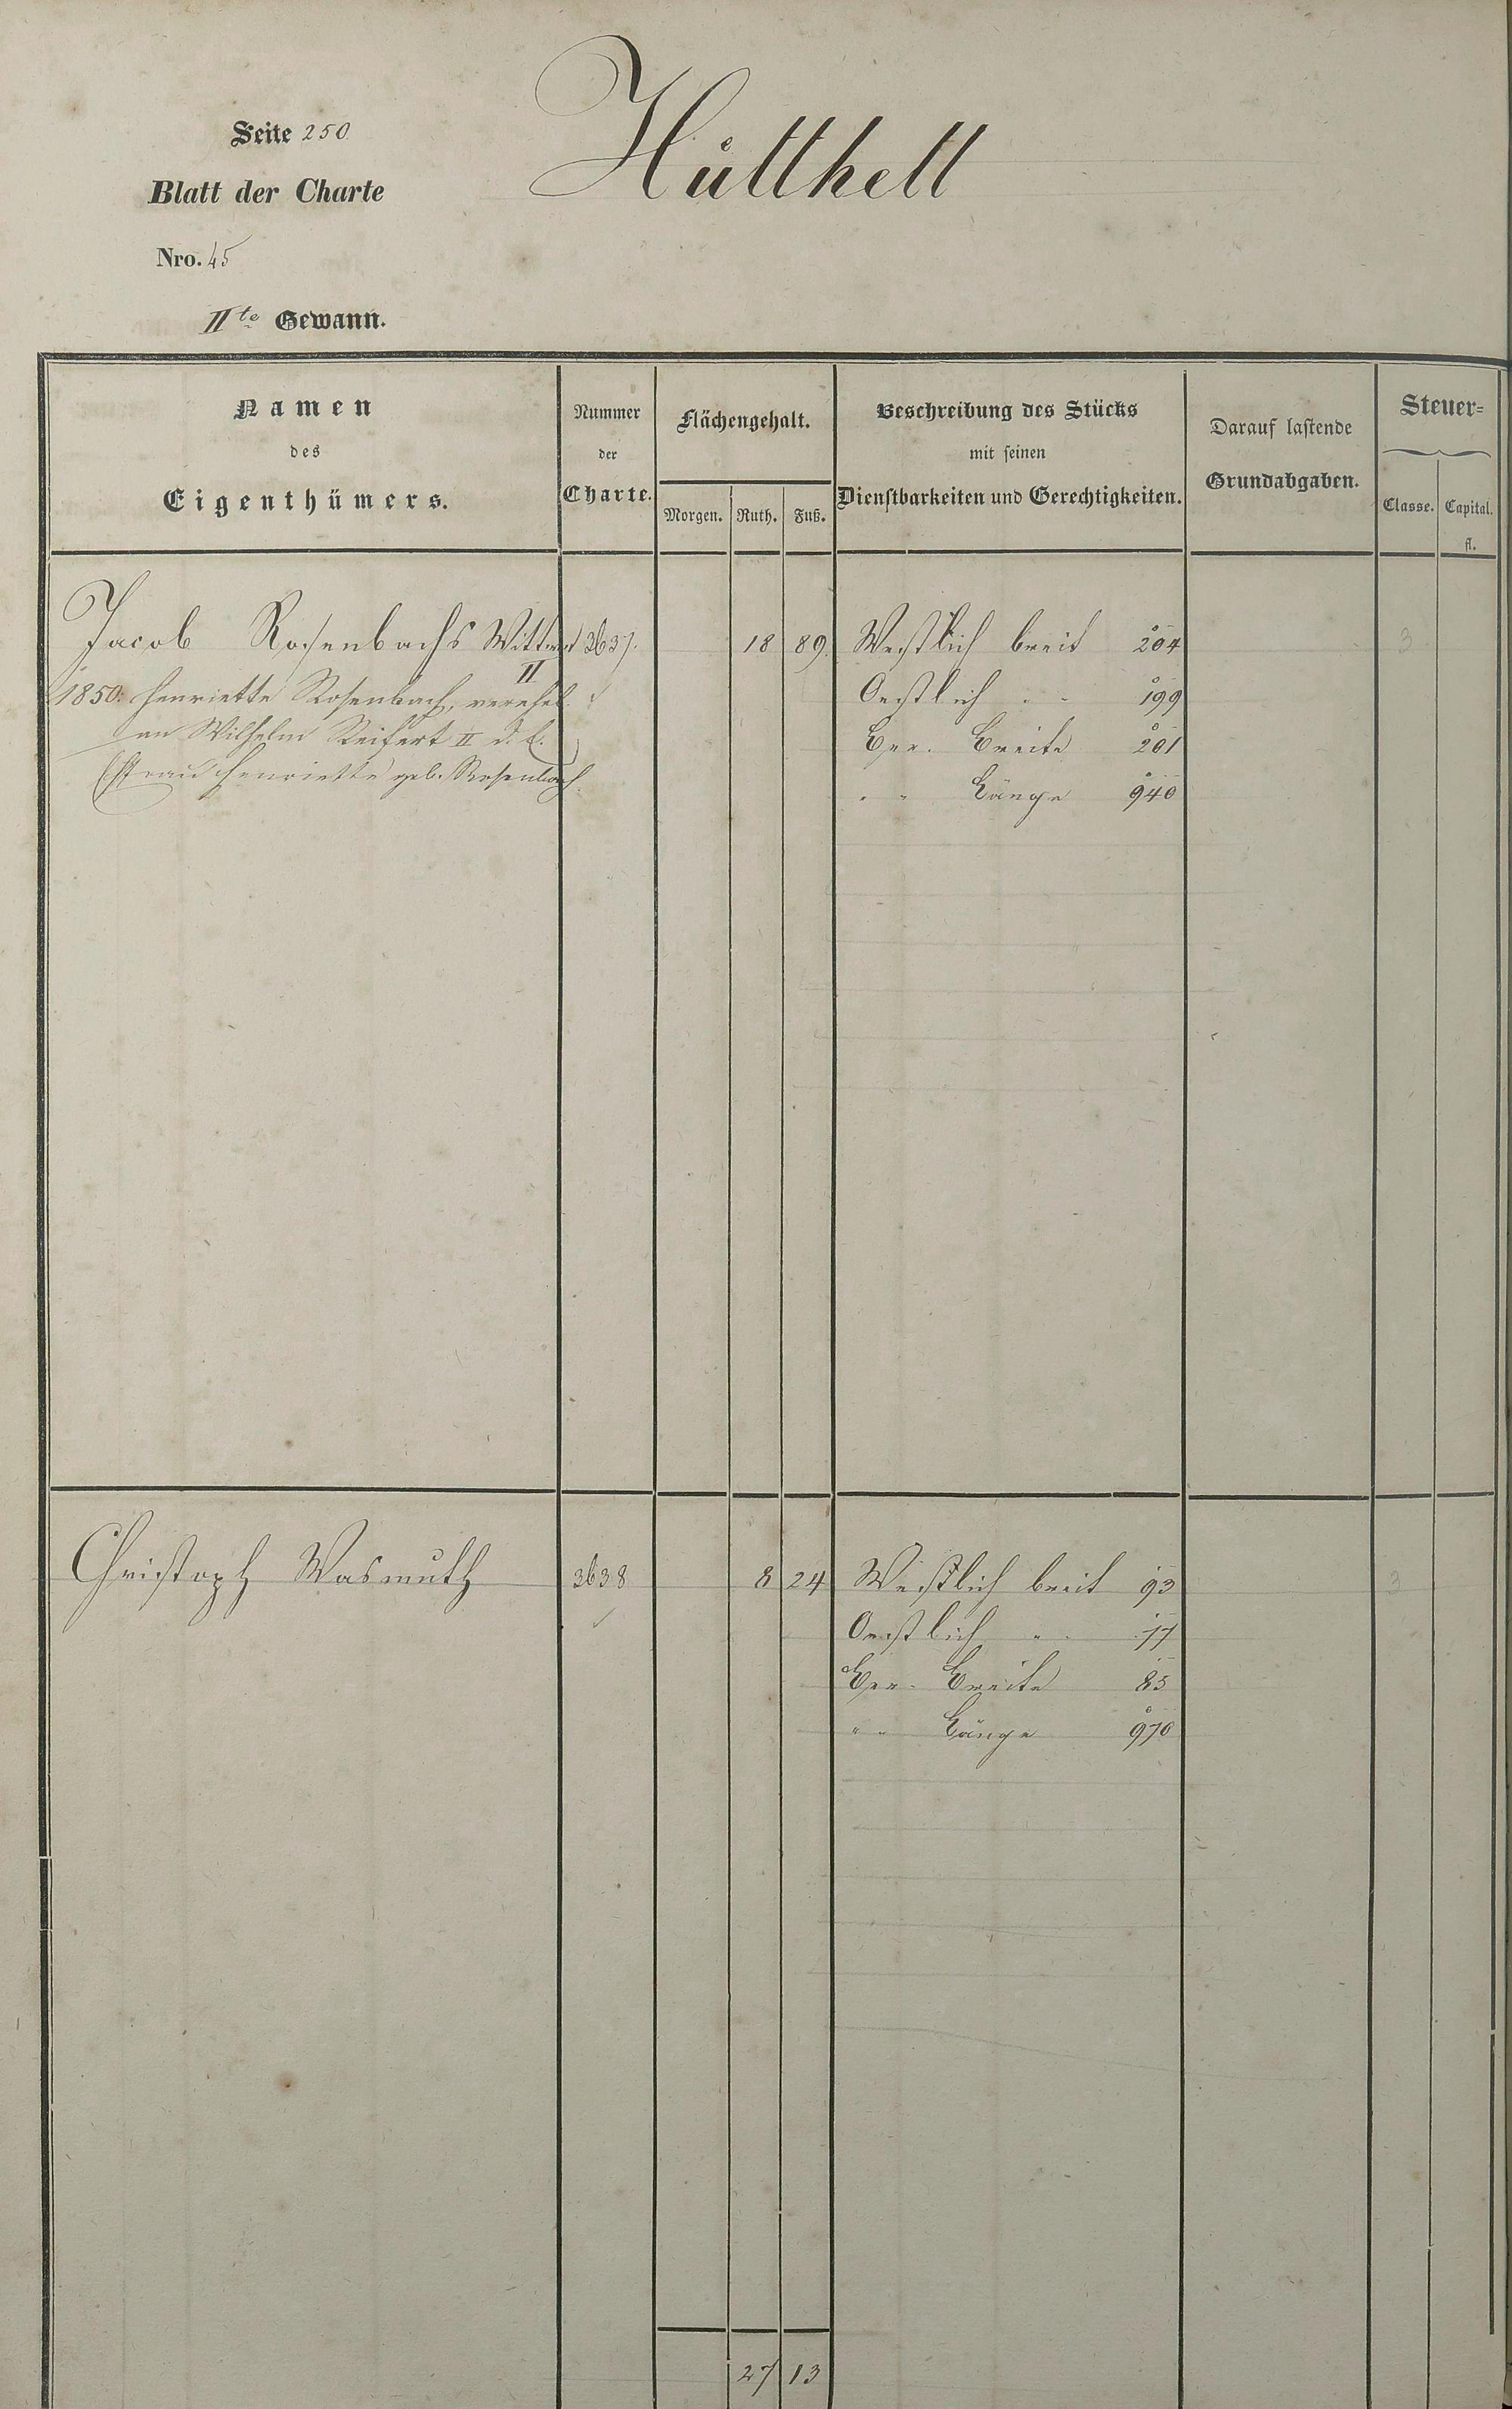 Seite 250
Hütthell
Blatt der Charte
Nro. 45
IIte Gewann.
Namen
des
Eigenthümers.
Nummer
der
Charte.
Flächengehalt.
Morgen. Ruth. Fuß.
Beschreibung des Stücks
mit seinen
Dienstbarkeiten und Gerechtigkeiten.
Darauf lastende
Grundabgaben.
Steuer=
Classe. Capital.
fl.
Jacob Rosenbachs Wittwe 3637. 18 89. Westlich breit 204 3
II
1850: Henriette Rosenbach, verehel. Oestlich " " 199
an Wilhelm Reifert II d. E. Ber. Breite 201
(Frau Henriette geb. Rosenbach) " " Länge 940
Christoph Wasmuth 3638 8 24 Westlich breit 93 3
Oestlich " " 77
Ber. Breite 85
" " Länge 970
27 13